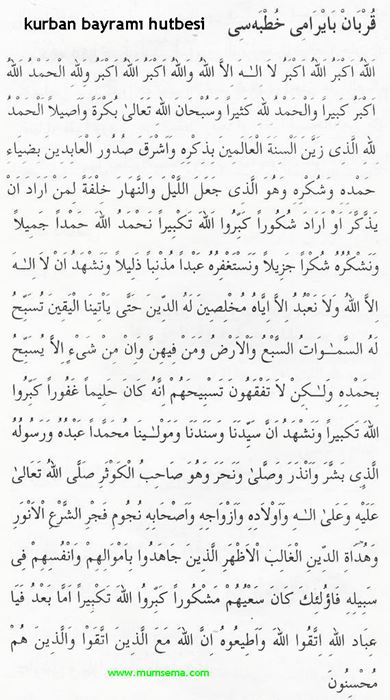 kurban bayramı hutbesi قُرْبَانْ بَايْرَامِى خُطْبَه‌سِى
اَللهُ اَكْبَرُ اَللهُ اَكْبَرُ لَا اِلٰـهَ اِلَّا اللهُ وَاللهُ اَكْبَرُ اَللهُ اَكْبَرُ وَلِلهِ الْحَمْدُ اَللهُ
اَكْبَرُ كَبِيراً وَالْحَمْدُ لِلهِ كَثِيراً وَسُبْحَانَ اللهِ تَعَالىٰ بُكْرَةً وَاَصِيلاً اَلْحَمْدُ
لِلهِ الَّذِى زَيَّنَ اَلْسِنَةَ الْعَالَمِينَ بِذِكْرِهِ وَاَشْرَقَ صُدُورَ الْعَابِدِينَ بِضِيَاءِ
حَمْدِهِ وَشُكْرِهِ وَهُوَ الَّذِى جَعَلَ اللَّيْلَ وَالنَّهَارَ خِلْفَةً لِمَنْ اَرَادَ اَنْ
يَذَّكَّرَ اَوْ اَرَادَ شُكُوراً كَبِّرُوا اللهَ تَكْبِيراً نَحْمَدُ اللهَ حَمْداً جَمِيلاً
وَنَشْكُرُهُ شُكْراً جَزِيلاً وَنَسْتَغْفِرُهُ عَبْداً مُذْنِباً ذَلِيلاً وَنَشْهَدُ اَنْ لَا اِلٰـهَ
اِلَّا اللهُ وَلَا نَعْبُدُ اِلَّا اِيَّاهُ مُخْلِصِينَ لَهُ الدِّينَ حَتّٰى يَأْتِيَنَا الْيَقِينَ تُسَبِّحُ
لَهُ السَّمٰـوَاتُ السَّبْعُ وَالْاَرْضُ وَمَنْ فِيهِنَّ وَاِنْ مِنْ شَىْءٍ اِلَّا يُسَبِّحُ
بِحَمْدِهِ وَلٰـكِنْ لَا تَفْقَهُونَ تَسْبِيحَهُمْ اِنَّهُ كَانَ حَلِيماً غَفُوراً كَبِّرُوا
اللهَ تَكْبِيراً وَنَشْهَدُ اَنَّ سَيِّدَنَا وَسَنَدَنَا وَمَوْلٰـينَا مُحَمَّداً عَبْدُهُ وَرَسُولُهُ
الَّذِى بَشَّرَ وَاَنْذَرَ وَصَلّىٰ وَنَحَرَ وَهُوَ صَاحِبُ الْكَوْثَرِ صَلَّى اللهُ تَعَالىٰ
عَلَيْهِ وَعَلىٰ اٰلِـهِ وَاَوْلَادِهِ وَاَزْوَاجِهِ وَاَصْحَابِهِ نُجُومِ فَجْرِ الشَّرْعِ الْاَنْوَرِ
وَهُدَاةِ الدِّينِ الْغَالِبِ الْاَظْهَرِ الَّذِينَ جَاهَدُوا بِاَمْوَالِهِمْ وَاَنْفُسِهِمْ فِى
سَبِيلِهِ فَاُولٰئِكَ كَانَ سَعْيُهُمْ مَشْكُوراً كَبِّرُوا اللهَ تَكْبِيراً اَمَّا بَعْدُ فَيَا
عِبَادَ اللهِ اِتَّقُوا اللهَ وَاَطِيعُوهُ اِنَّ اللهَ مَعَ الَّذِينَ اتَّقَوْا وَالَّذِينَ هُمْ
مُحْسِنُونَ
www.mumsema.com